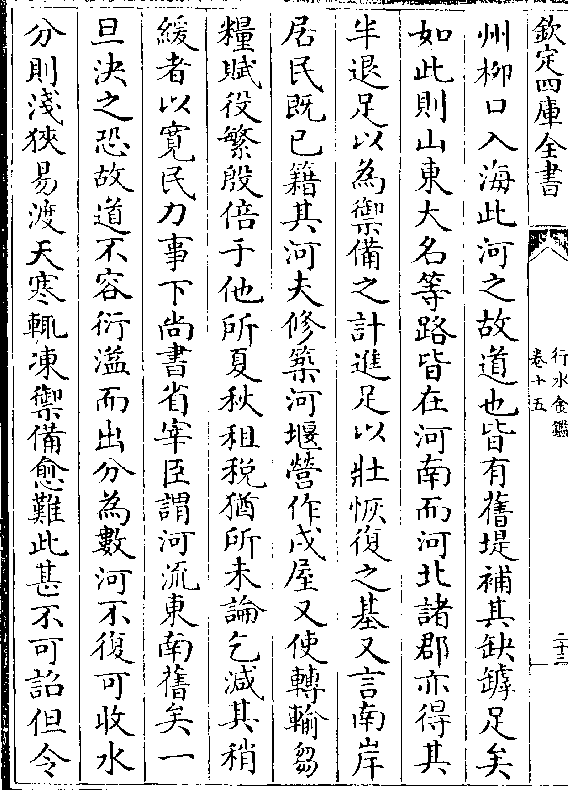 欽定四庫全書
行水金鑑
卷十五
二十三
州柳口入海此河之故道也皆有舊堤補其缺罅足矣
如此則山東大名等路皆在河南而河北諸郡亦得其
半退足以為禦備之計進足以壯恢復之基又言南岸
居民既已籍其河夫修築河堰營作戍屋又使轉輸芻
糧賦役繁殷倍于他所夏秋租稅猶所未論乞減其稍
緩者以寬民力事下尚書省宰臣謂河流東南舊矣一
旦決之恐故道不容衍溢而出分為數河不復可收水
分則淺狹易渡天寒輒凍禦備愈難此甚不可詔但令